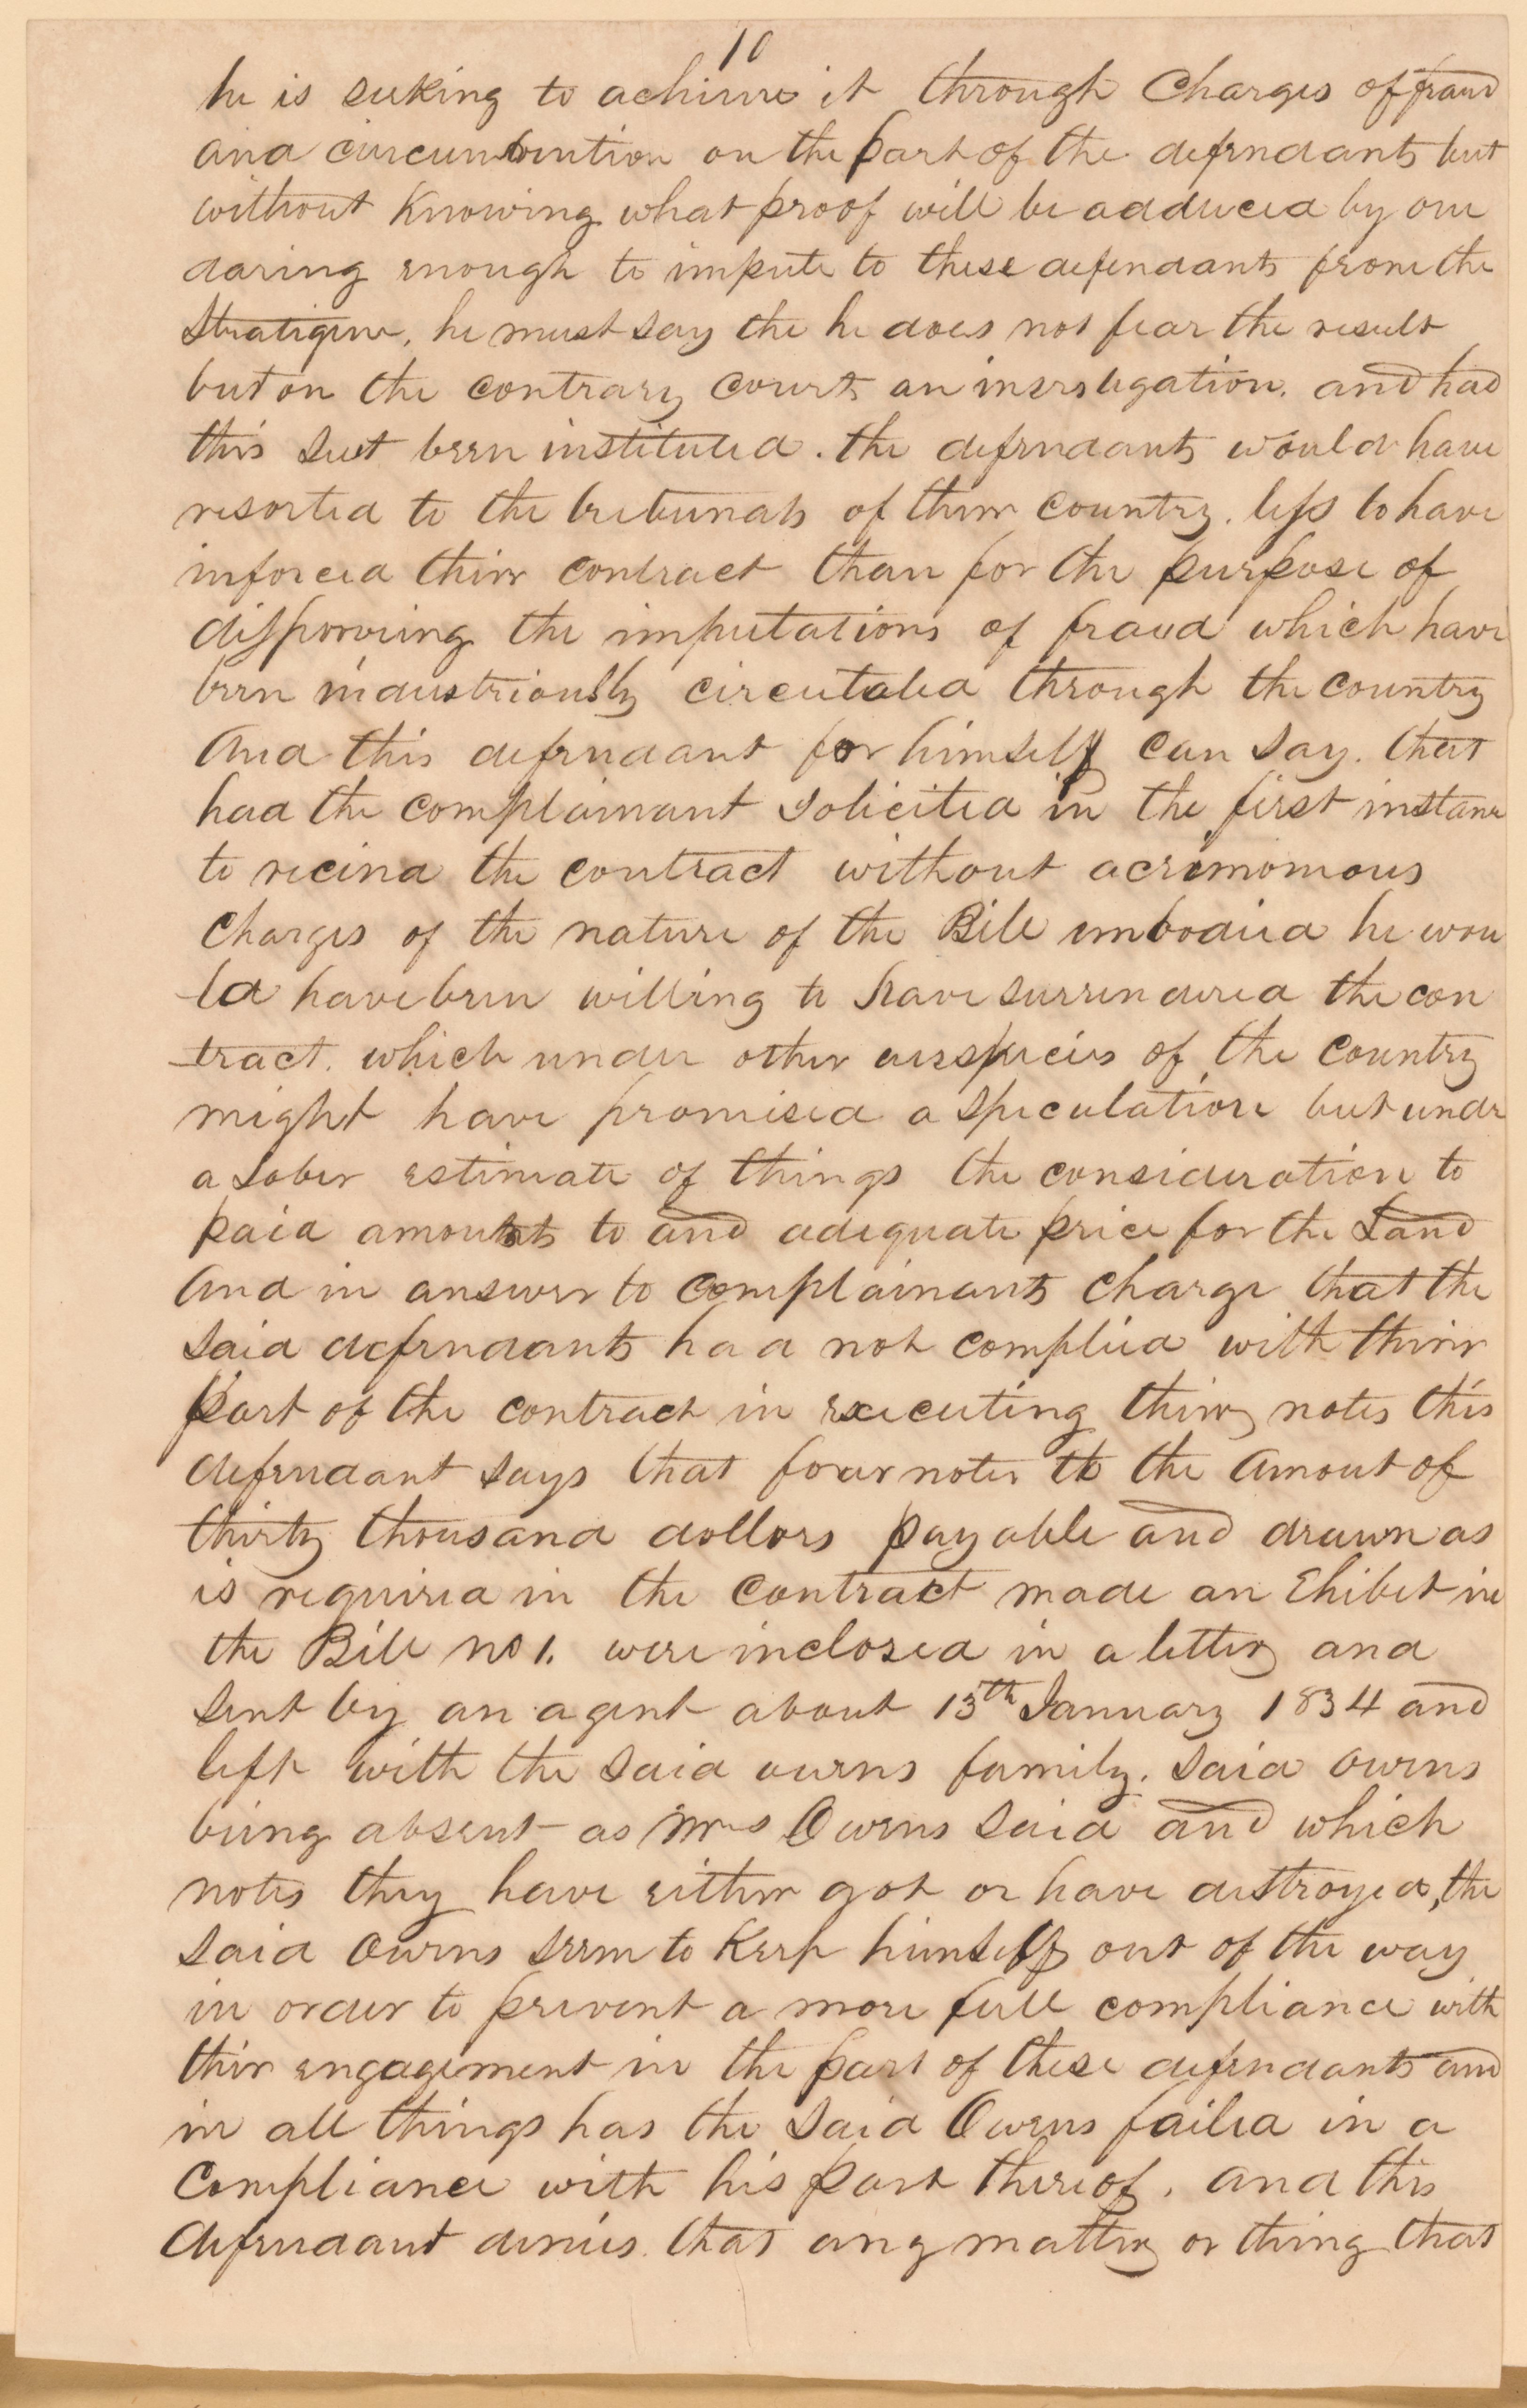 10
he is seeking to achieve it through Charges of fraud
and circumvention on the part of the defendants but
without Knowing what proof will be adduced by one
daring enough to impute to these defendants from the
Stratigem, he must say the he does not fear the result
but on the contrary courts an investigation. and had
this suit been instituted. the defendants would have
resorted to the tribunals of their country. less to have
inforced their contract than for the purpose of
disproveing the imputations of fraud which have
been industriously circulated through the country
And this defendant for himself can say. that
had the complainant solicited in the first instance
to recind the contract without acrimonious
Charges of the nature of the Bill embodied he wou
ld have been willing to have surrendered the con
tract. which under other auspicies of the country
might have promised a speculation but under
a sober estimate of things the consideration to
paid amounts to and adequate price for the Land
And in answer to complainants charge that the
said defendants had not complied with their
part of the contract in executing their notes this
defendant says that four notes to the amout of
thirty thousand dollors payable and drawn as
is required in the contract made an Ehibet in
the Bill no 1. were inclosed in a letter and
sent by an agent about 13th January 1834 and
left with the said owens family. said owens
being absent as Mrs Owens said and which
notes they have either got or have destroyed, the
said Owens seem to Keep himself out of the way
in order to prevent a more full compliance with
their engagement in the part of these defendants and
in all things has the said Owens failed in a
Compliance with his part thereof. and this
defendant denies that any matter or thing that